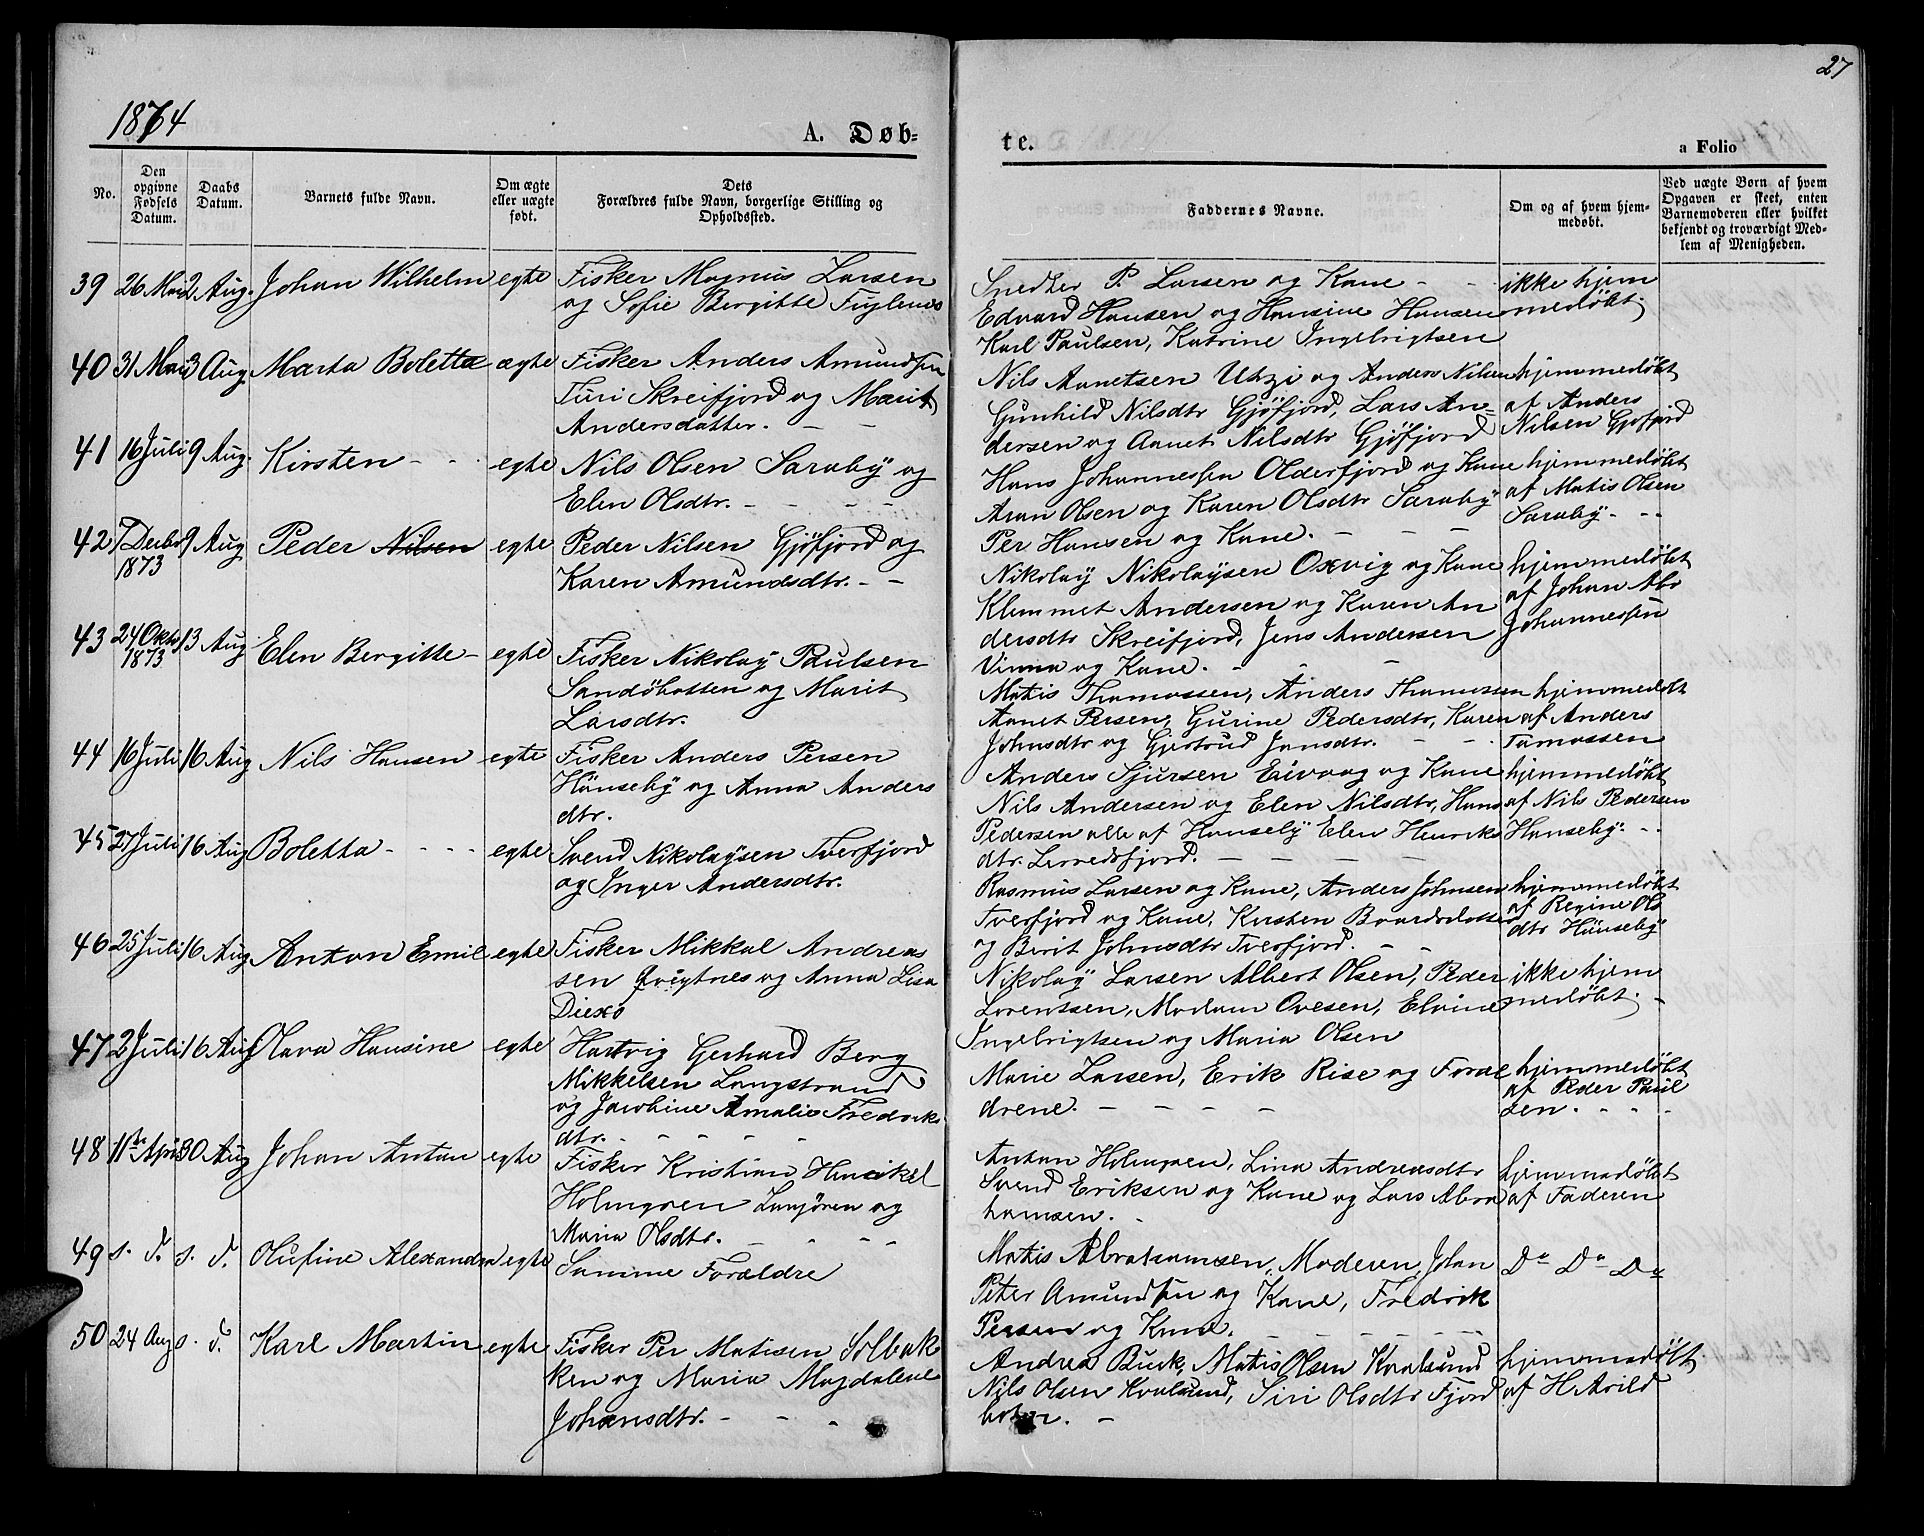 27
1874
A. Døb-
te.
a Folio
No.
Den opgivne Fødsels Datum.
Daabs Datum.
Barnets fulde Navn.
Om ægte eller uægte født.
Dets Forældres fulde Navn, borgerlige Stilling og Opholdssted.
Faddernes Navne.
Om og af hvem hjemmedøbt.
Ved uægte Børn af hvem Opgaven er skeet, enten Barnemoderen eller hvilket bekjendt og troværdigt Medlem af Menigheden.
39 26 Mai 2 Aug. Johan Wilhelm egte Fisker Magnus Larsen
og Sofie Bergitte Fuglenes
Snedker P. Larsen og Kane - -
Edvard Hansen og Hansine Hansen
Karl Paulsen, Katrine Ingebrigtsen
ikke hjem
medøbt.
40 31 Mai 3 Aug. Marta Boletta ægte Fisker Anders Amundsen
Turi Skreifjord og Marit
Andersdatter. - -
Nils Aanetsen Utzi og Anders Nilsen
Gunhild Nilsdtr Gjøfjord, Lars An=
dersen og Aanet Nilsdtr Gjøfjord
hjemmedøbt
af Anders
Nilsen Gjøfjord
41 16 Juli 9 Aug. Kirsten - - egte Nils Olsen Saraby og
Elen Olsdtr. - - - -
Hans Johannessen Olderfjord og Kane
Aran Olsen og Karen Olsdtr Saraby
Per Hansen og Kane. - - -
hjemmedøbt
af Matis Olsen
Saraby - - -
42 7 Decbr 1873 9 Aug Peder Nilsen egte Peder Nilsen Gjøfjord og
Karen Amundsdtr. - -
Nikolay Nikolaysen Oxvig og Kane
Klemmet Andersen og Karen An
dersdtr Skreifjord, Jens Andersen
Vinna og Kane. - - -
hjemmedøbt
af Johan Abr
Johannessen
43 24 Oktb 1873 13 Aug Elen Bergitte - egte Fisker Nikolay Paulsen
Sandøbotten og Marit
Larsdtr.
Matis Thomassen, Anders Thomassen
Aanet Persen, Gurine Pedersdtr, Karen
Johnsdtr og Gjertrud Jonsdtr. - -
hjemmedøbt
af Anders
Tomassen
44 16 Juli 16 Aug Nils Hansen egte Fisker Anders Persen
Hönseby og Anna Anders
dtr.
Anders Sjursen Eivaag og Kane
Nils Andersen og Elen Nilsdtr, Hans
Pedersen alle af Hanseby Elen Henriks
dtr. Lerredsfjord. - - - -
hjemmedøbt
af Nils Pedersen
Hanseby - -
45 27 Juli 16 Aug Boletta - - - - egte Svend Nikolaysen Tverfjord
og Inger Andersdtr.
Rasmus Larsen og Kane, Anders Johnsen
Tverfjord og Kane, Kirsten Baardsdatter
og Berit Johnsdtr Tverfjord. - -
hjemmedøbt
af Regine Ols
dtr Hönseby
46 25 Juli 16 Aug Anton Emil egte Fisker Mikkal Andreas
sen Qvigtnes og Anna Lisa
Nikolay Larsen Albert Olsen, Peder
Lorentsen, Madam Ovesen, Elvine
Ingebrigtsen og Maria Olsen
ikke hjem
medøbt. -
47 2 Juli 16 Aug Olava Hansine egte Hartvig Gerhard Berg
Mikkelsen Langstrand
og Jacobine Amalie Fredriks
dtr. - - - -
Marie Larsen, Erik Rise og Foræl
drene. - - - -
hjemmedøbt
af Peder Paul
sen. - - -
48 11te April 30 Aug Johan Anton egte Fisker Kristian Henrikel
Holmgren og
Maria Olsdtr. - - - -
Anton Holmgren, Lina Andreasdtr
Svend Eriksen og Kane og Lars Abra
hamsen.
hjemmedøbt
af Faderen
49 s. d. s. d. Olufine Alexandra egte Samme Forældre
Matis Abrahamsen, Moderen, Johan
Peter Amundsen og Kone, Fredrik
Persen og Kane. - - - -
Do Do Do
50 24 Aug s. d. Karl Martin egte Fisker Per Matisen Solbak
ken og Maria Magdalene
Johansdtr. - - -
Andrea Buck, Matis Olsen Kvalsund
Nils Olsen Kvalsund, Siri Olsdtr Fjord
botn. -
hjemmedøbt
af H Arild